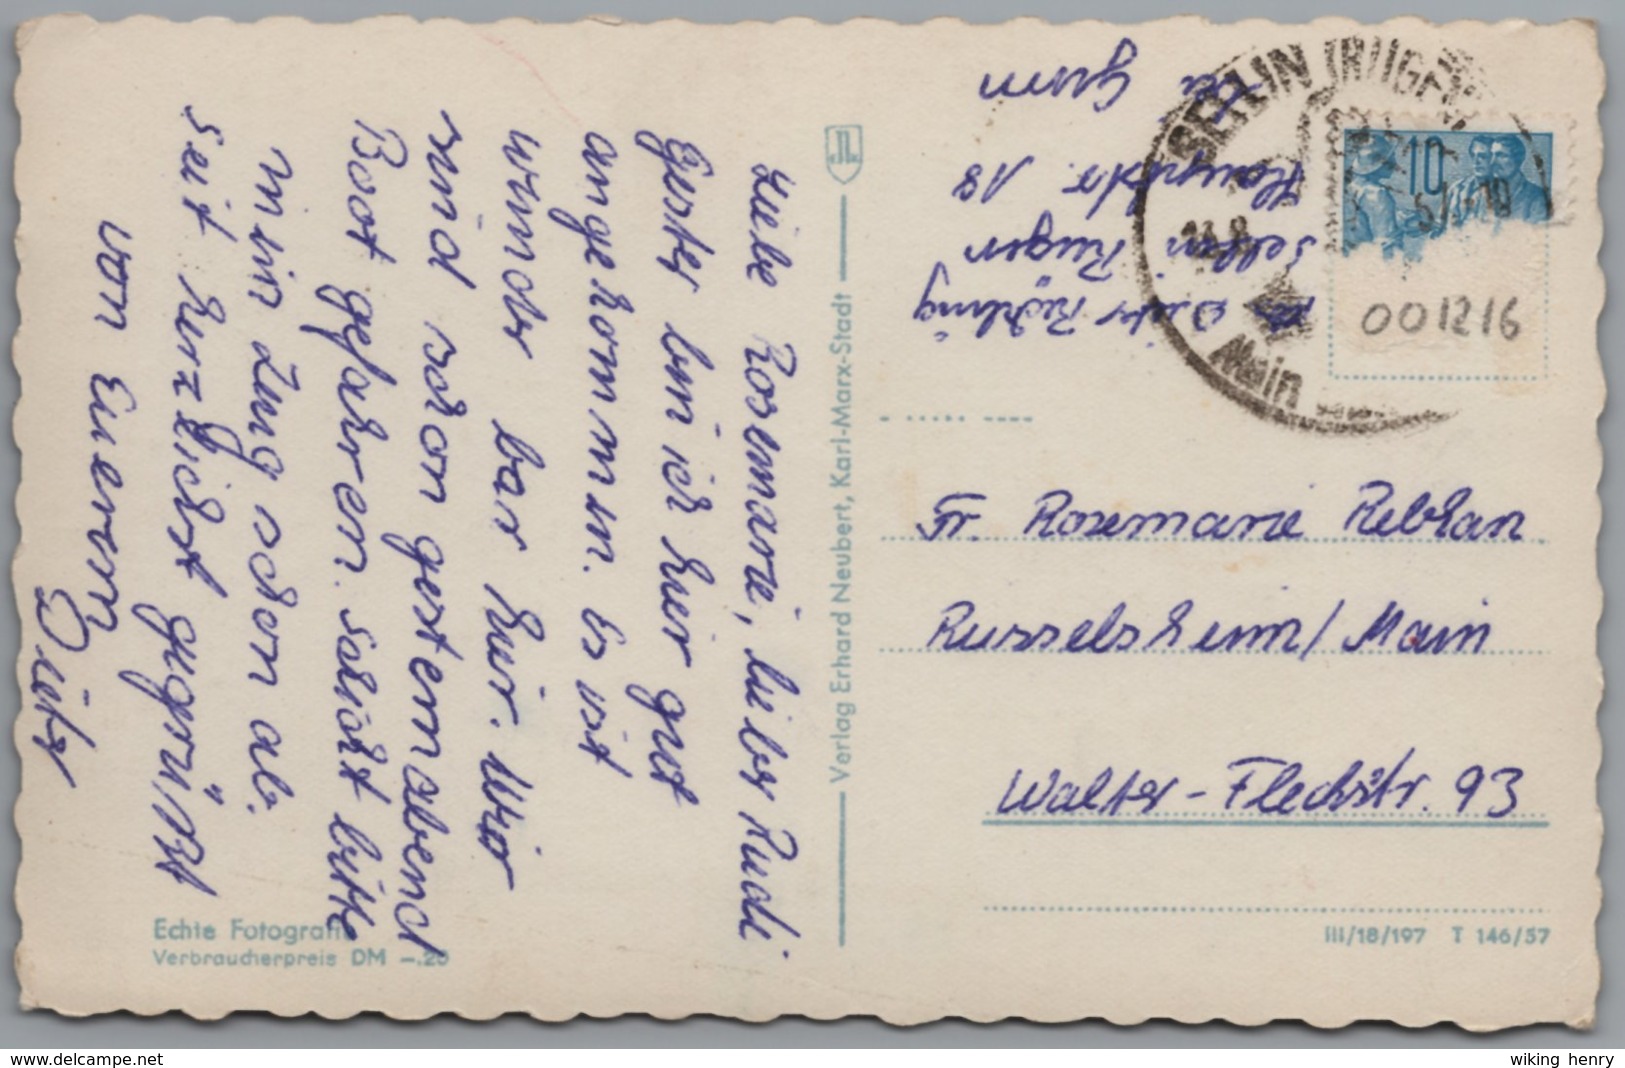 Liebe Rosemarie, lieber Rudi
Gester bin ich hier gut
angekommen. Es ist
wunder bar hier. Wir
sind schon gestern abend
Boot gefahren. Schickt bitte
mein Zeug schon ab.
Seit herzlichst gegrüßt
von Eurem
Dieter
Echte Fotografie
Verbraucherpreis DM -.20
Verlag Erhard Neubert, Karl-Marx-Stadt
Dieter
Sellin Rügen
Hauptstr. 18
SELLIN (RÜGEN)
10
001216
Fr. Rosemarie Rebhan
Russelsheim/Main
Walter-Flechstr. 93
III/18/197 T 146/57
delcampe.net
wiking henry